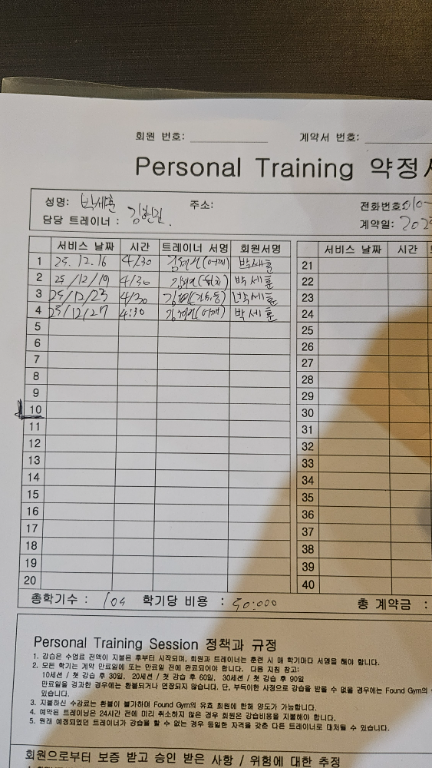 회원 번호: 계약서 번호:
Personal Training 약정서
성명: 박세훈 주소: 전화번호: 010-
담당 트레이너: 계약일: 202
서비스 날짜 시간 트레이너 서명 회원서명 서비스 날짜 시간
1 25. 12. 16 4/30 (어깨) 박세훈 21
2 25/12/19 4/30 박세훈 22
3 25/12/23 4/30 박세훈 23
4 25/12/27 4:30 (어깨) 박세훈 24
5 25
6 26
7 27
8 28
9 29
10 30
11 31
12 32
13 33
14 34
15 35
16 36
17 37
18 38
19 39
20 40
총학기수 : 학기당 비용 : 50:000 총 계약금 :
Personal Training Session 정책과 규정
1. 강습은 수업료 전액이 지불된 후부터 시작되며, 회원과 트레이너는 훈련 시 매 학기마다 서명을 해야 합니다.
2. 모든 학기는 계약 만료일에 또는 만료일 전에 완료되어야 합니다. 다음 지침 참고:
10세션 / 첫 강습 후 30일, 20세션 / 첫 강습 후 60일, 30세션 / 첫 강습 후 90일
만료일을 경과한 경우에는 환불되거나 연장되지 않습니다. 단, 부득이한 사정으로 강습을 받을 수 없을 경우에는 Found Gym의
있습니다.
3. 지불하신 수강료는 환불이 불가하며 Found Gym의 유효 회원에 한해 양도가 가능합니다.
4. 예약된 트레이닝은 24시간 전에 미리 취소하지 않은 경우 회원은 강습비용을 지불해야 합니다.
5. 원래 예정되었던 트레이너가 강습을 할 수 없는 경우 동일한 자격을 갖춘 다른 트레이너로 대처될 수 있습니다.
회원으로부터 보증 받고 승인 받은 사항 / 위험에 대한 추정